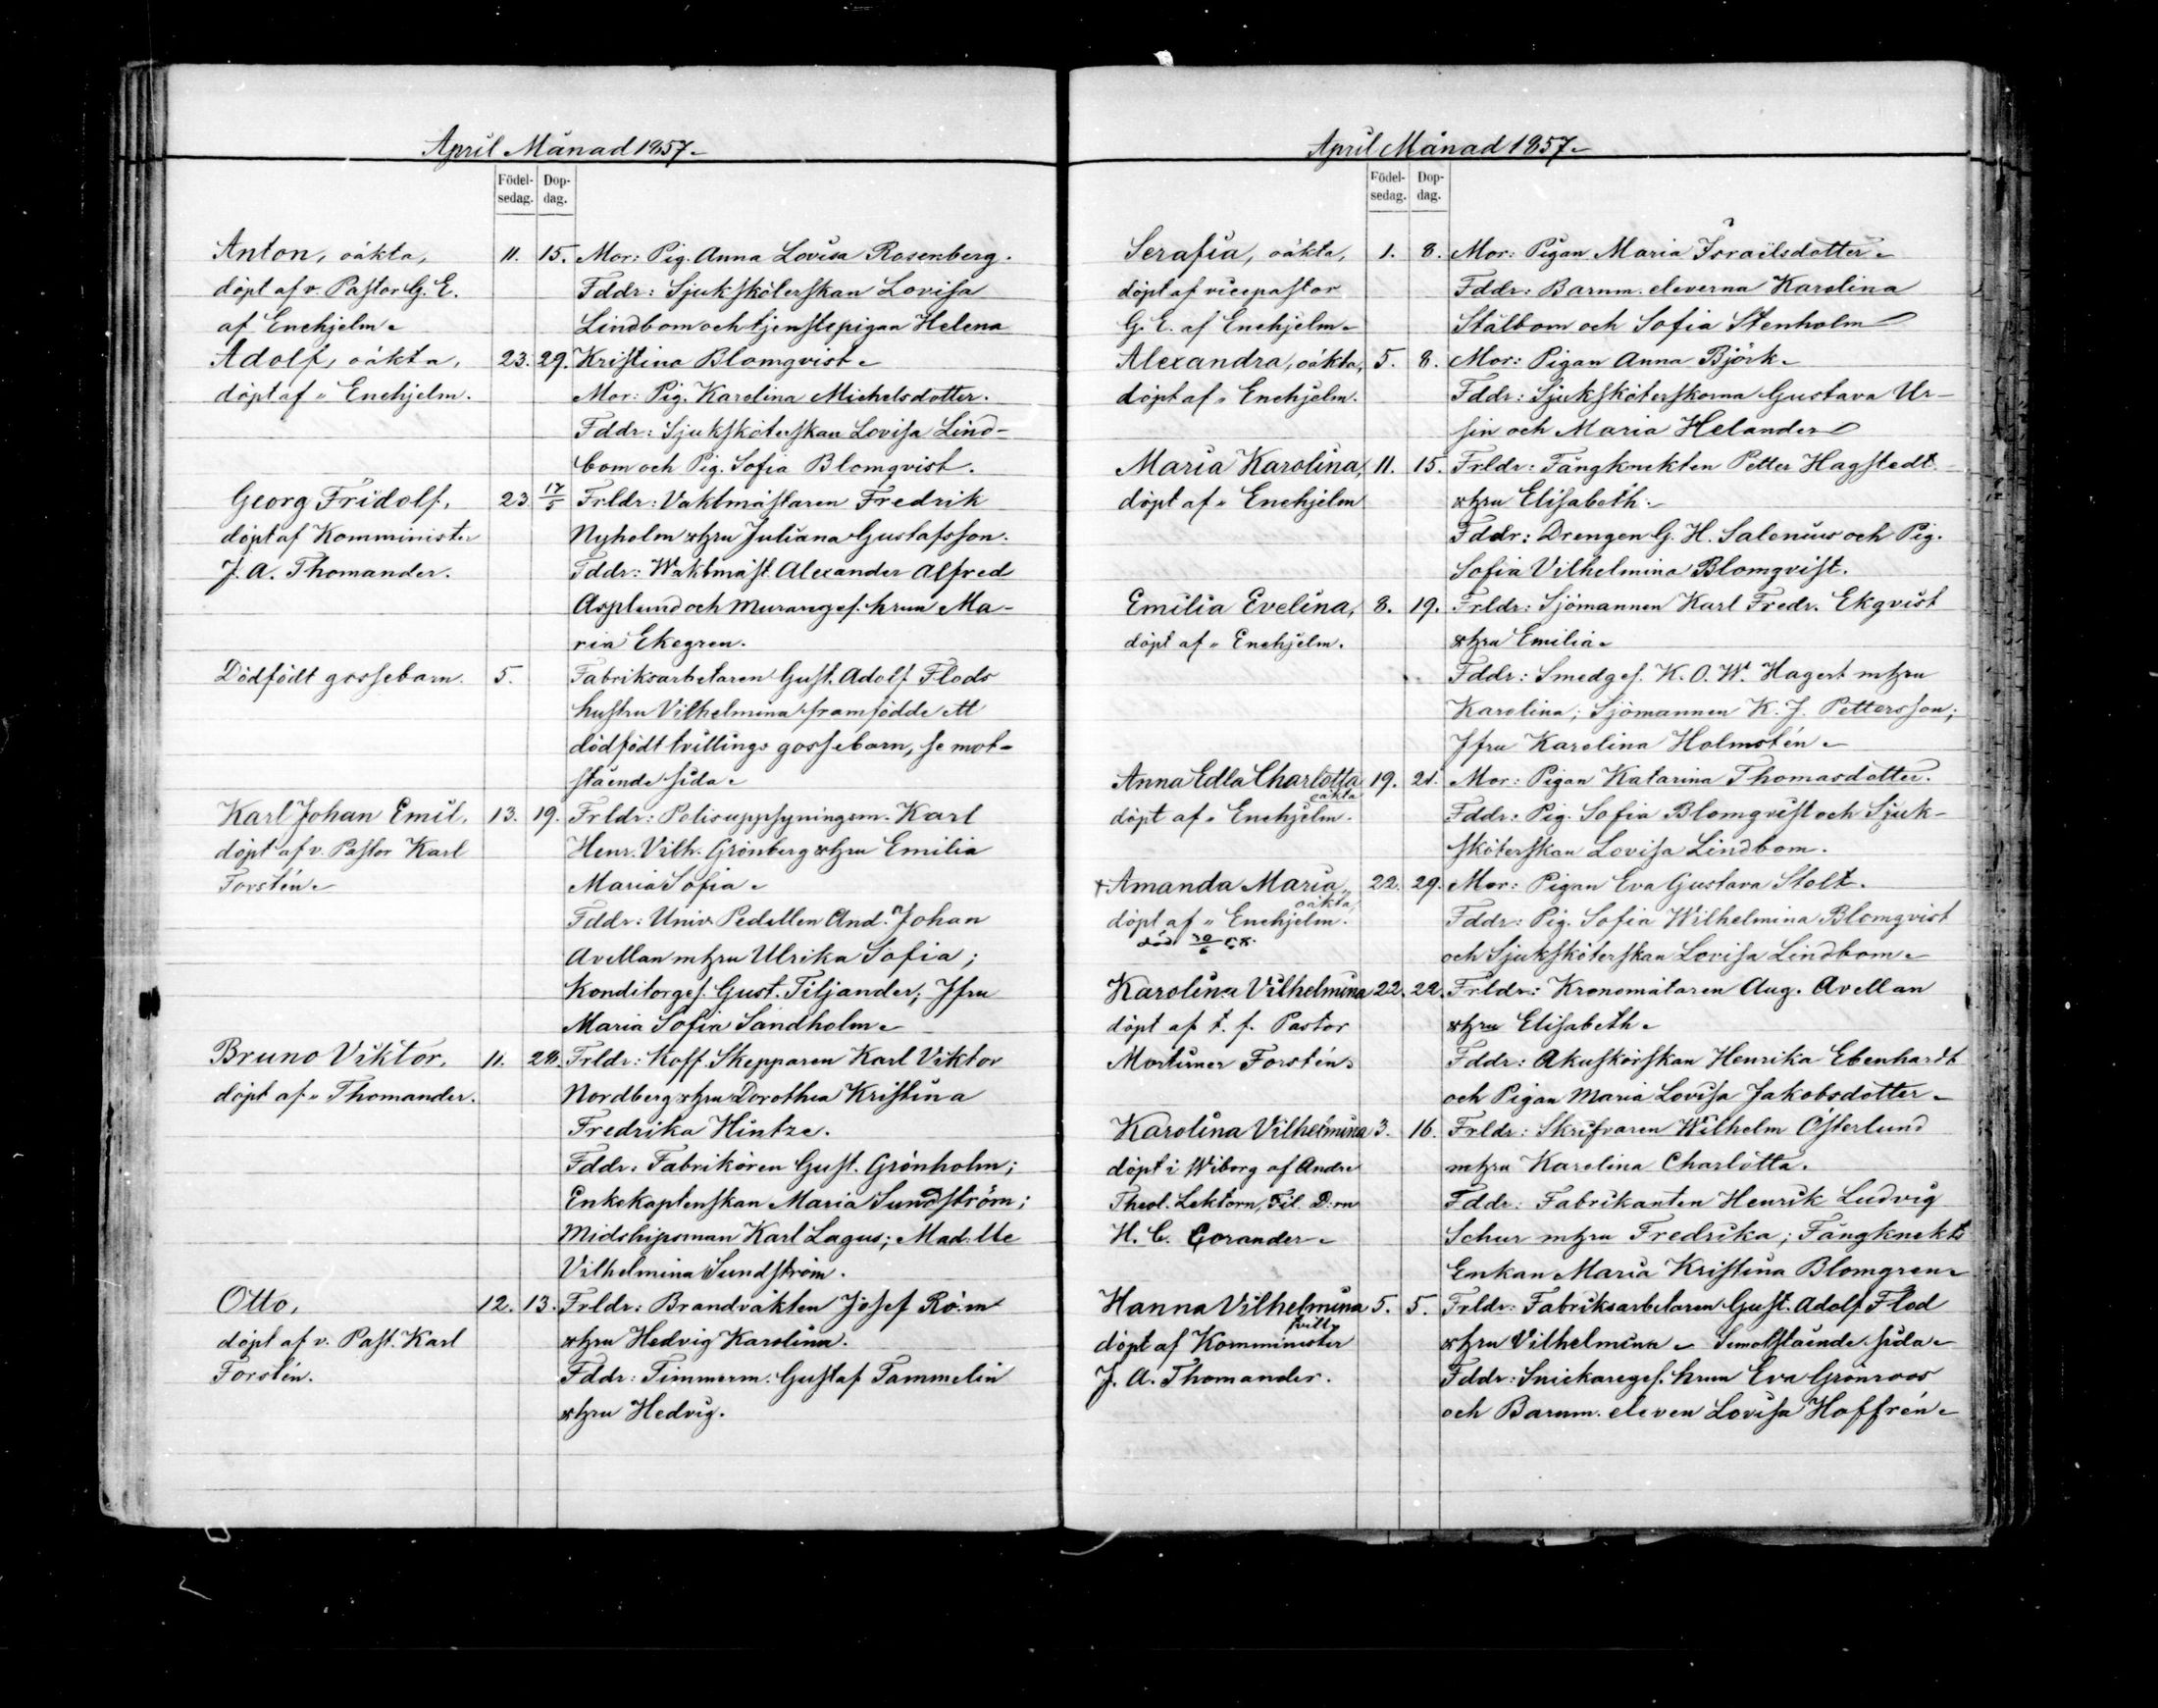 April Månad 1857.
Födel-sedag. Dop-dag.
Anton, oäkta, 11. 15. Mor: Pig. Anna Lovisa Rosenberg.
döpt af v. Pastor G. E. Fddr: Sjuksköterskan Lovisa
af Enehjelm. Lindbom och tjenstepigan Helena
Adolf, oäkta, 23. 29. Kristina Blomqvist.
döpt af „ Enehjelm. Mor: Pig. Karolina Michelsdotter.
Fddr: Sjuksköterskan Lovisa Lind-
bom och Pig. Sofia Blomqvist.
Georg Fridolf, 23 17/5 Frldr: Vaktmästaren Fredrik
döpt af Komminister Nyholm o hru Juliana Gustafsson.
J. A. Thomander. Fddr: Waktmäst. Alexander Alfred
Asplund och Murareges. hrun Ma-
ria Ekegren.
Dödfödt gossebarn. 5. Fabriksarbetaren Gust. Adolf Flods
hustru Vilhelmina framfödde ett
dödfödt tvillings gossebarn, se mot-
stående sida.
Karl Johan Emil, 13. 19. Frldr: Polisuppsyningsm. Karl
döpt af v. Pastor Karl Henr. Vilh. Grönberg o hru Emilia
Forstén. Maria Sofia.
Fddr: Univ. Pedellen And. Johan
Avellan m hru Ulrika Sofia;
Konditorges. Gust. Tiljander; Jfru
Maria Sofia Sandholm.
Bruno Viktor, 11. 28. Frldr: Koff. Skepparen Karl Viktor
döpt af „ Thomander. Nordberg o hru Dorothea Kristina
Fredrika Hintze.
Fddr: Fabrikören Gust. Grönholm;
Enkekaptenskan Maria Sundström;
Midshipsman Karl Lagus; Mad:lle
Vilhelmina Sundström.
Otto, 12. 13. Frldr: Brandvakten Josef
döpt af v. Past. Karl o hru Hedvig Karolina.
Forstén. Fddr: Timmerm. Gustaf Tammelin
o hru Hedvig.
April Månad 1857.
Födel-sedag. Dop-dag.
Serafia, oäkta, 1. 8. Mor: Pigan Maria Israïlsdotter.
döpt af vicepastor Fddr: Barnm. eleverna Karolina
G. E. af Enehjelm. Stålbom och Sofia Stenholm
Alexandra, oäkta, 5. 8. Mor: Pigan Anna Björk.
döpt af „ Enehjelm. Fddr: Sjuksköterskorna Gustava Ur-
sin och Maria Helander
Maria Karolina, 11. 15. Frldr: Fångknekten Petter Hagstedt
döpt af „ Enehjelm o hru Elisabeth.
Fddr: Drengen G. H. Salenius och Pig.
Sofia Vilhelmina Blomqvist.
Emilia Evelina, 8. 19. Frldr: Sjömannen Karl Fredr. Ekqvist
döpt af „ Enehjelm. o hru Emilia.
Fddr: Smedges. K. O. W. Hagert m hru
Karolina; Sjömannen K. J. Pettersson;
Jfru Karolina Holmstén.
Anna Edla Charlotta oäkta 19. 21. Mor: Pigan Katarina Thomasdotter.
döpt af „ Enehjelm. Fddr: Pig. Sofia Blomqvist och Sjuk-
sköterskan Lovisa Lindbom.
+ Amanda Maria, oäkta, 22. 29. Mor: Pigan Eva Gustava Stolt.
döpt af „ Enehjelm. Fddr: Pig. Sofia Wilhelmina Blomqvist
död 30/6 och Sjuksköterskan Lovisa Lindbom.
Karolina Vilhelmina 22. 22. Frldr: Kronomätaren Aug. Avellan
döpt af t. f. Pastor o hru Elisabeth.
Mortimer Forstén. Fddr: Akuskörskan Henrika Ebenhardt
och Pigan Maria Lovisa Jakobsdotter.
Karolina Vilhelmina 3. 16. Frldr: Skrifvaren Wilhelm Österlund
döpt i Wiborg af Andre m hru Karolina Charlotta.
Theol. Lektorn, Fil. D:rn Fddr: Fabrikanten Henrik Ludvig
H. C. Corander. Schur m hru Fredrika; Fångknekts
Enkan Maria Kristina Blomgren.
Hanna Vilhelmina tvill. 5. 5. Frldr: Fabriksarbetaren Gust. Adolf Flod
döpt af Komminister o hru Vilhelmina. Se motstående sida.
J. A. Thomander. Fddr: Snickareges. hrun Eva Grönroos
och Barnm. eleven Lovisa Hoffrén.